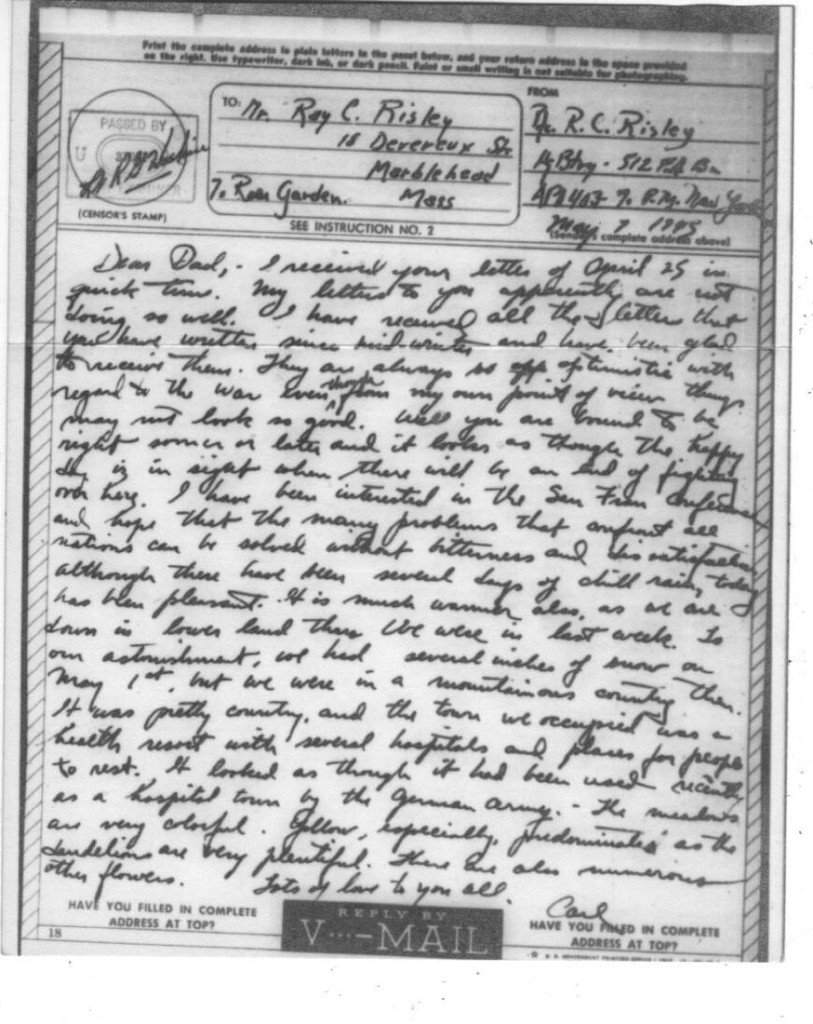 Print the complete address in plain letters in the panel below, and your return address in the space provided
on the right. Use typewriter, dark ink, or dark pencil. Faint or small writing is not suitable for photographing.
PASSED BY
U
(CENSOR'S STAMP)
TO:
Mr. Roy C. Risley
18 Devereux St.
Marblehead
Mass
SEE INSTRUCTION NO. 2
FROM
R. C. Risley
Btry - 512 F.A. Bn
APO 403 % P.M. New York
May 7 1945
(Sender's complete address above)
Dear Dad, - I received your letter of April 25 in
quick time. My letters to you apparently are not
doing so well. I have received all the letters that
you have written since mid-winter and have been glad
to receive them. They are always so optimistic with
regard to the war even though from my own point of view things
may not look so good. Well you are bound to be
right sooner or later and it looks as though the happy
day is in sight when there will be an end of fighting
over here. I have been interested in the San Fran Conference
and hope that the many problems that confront all
nations can be solved without bitterness and dissatisfaction
although there have been several days of chill rain, today
has been pleasant. It is much warmer also, as we are
down in lower land than we were in last week. To
our astonishment, we had several inches of snow on
May 1st, but we were in a mountainous country then.
It was pretty country, and the town we occupied was a
health resort with several hospitals and places for people
to rest. It looked as though it had been used recently
as a hospital town by the German army. - The meadows
are very colorful. Yellow, especially, predominates as the
dandelions are very plentiful. There are also numerous
other flowers. Lots of love to you all.
Carl
HAVE YOU FILLED IN COMPLETE
ADDRESS AT TOP?
REPLY BY
V····—MAIL
HAVE YOU FILLED IN COMPLETE
ADDRESS AT TOP?
18